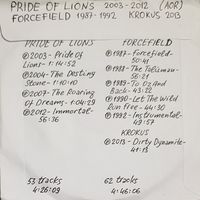 PRIDE OF LIONS 2003 - 2012 (AOR)
FORCEFIELD 1987-1992 KROKUS 2013
PRIDE OF LIONS
①2003-Pride of
Lions-1:14:52
②2004-The Destiny
Stone-1:10:10
③2007-The Roaring
of Dreams-1:04:29
④2012-Immortal-
56:36
53 tracks
4:26:09
FORCEFIELD
①1987-Forcefield-
50:41
②1988-The Talisman-
56:21
③1989-To Oz And
Back-43:22
④1990-Let The Wild
Run Free-44:30
⑤1992-Instrumental-
49:57
KROKUS
①2013-Dirty Dynamite-
41:13
62 tracks
4:46:06